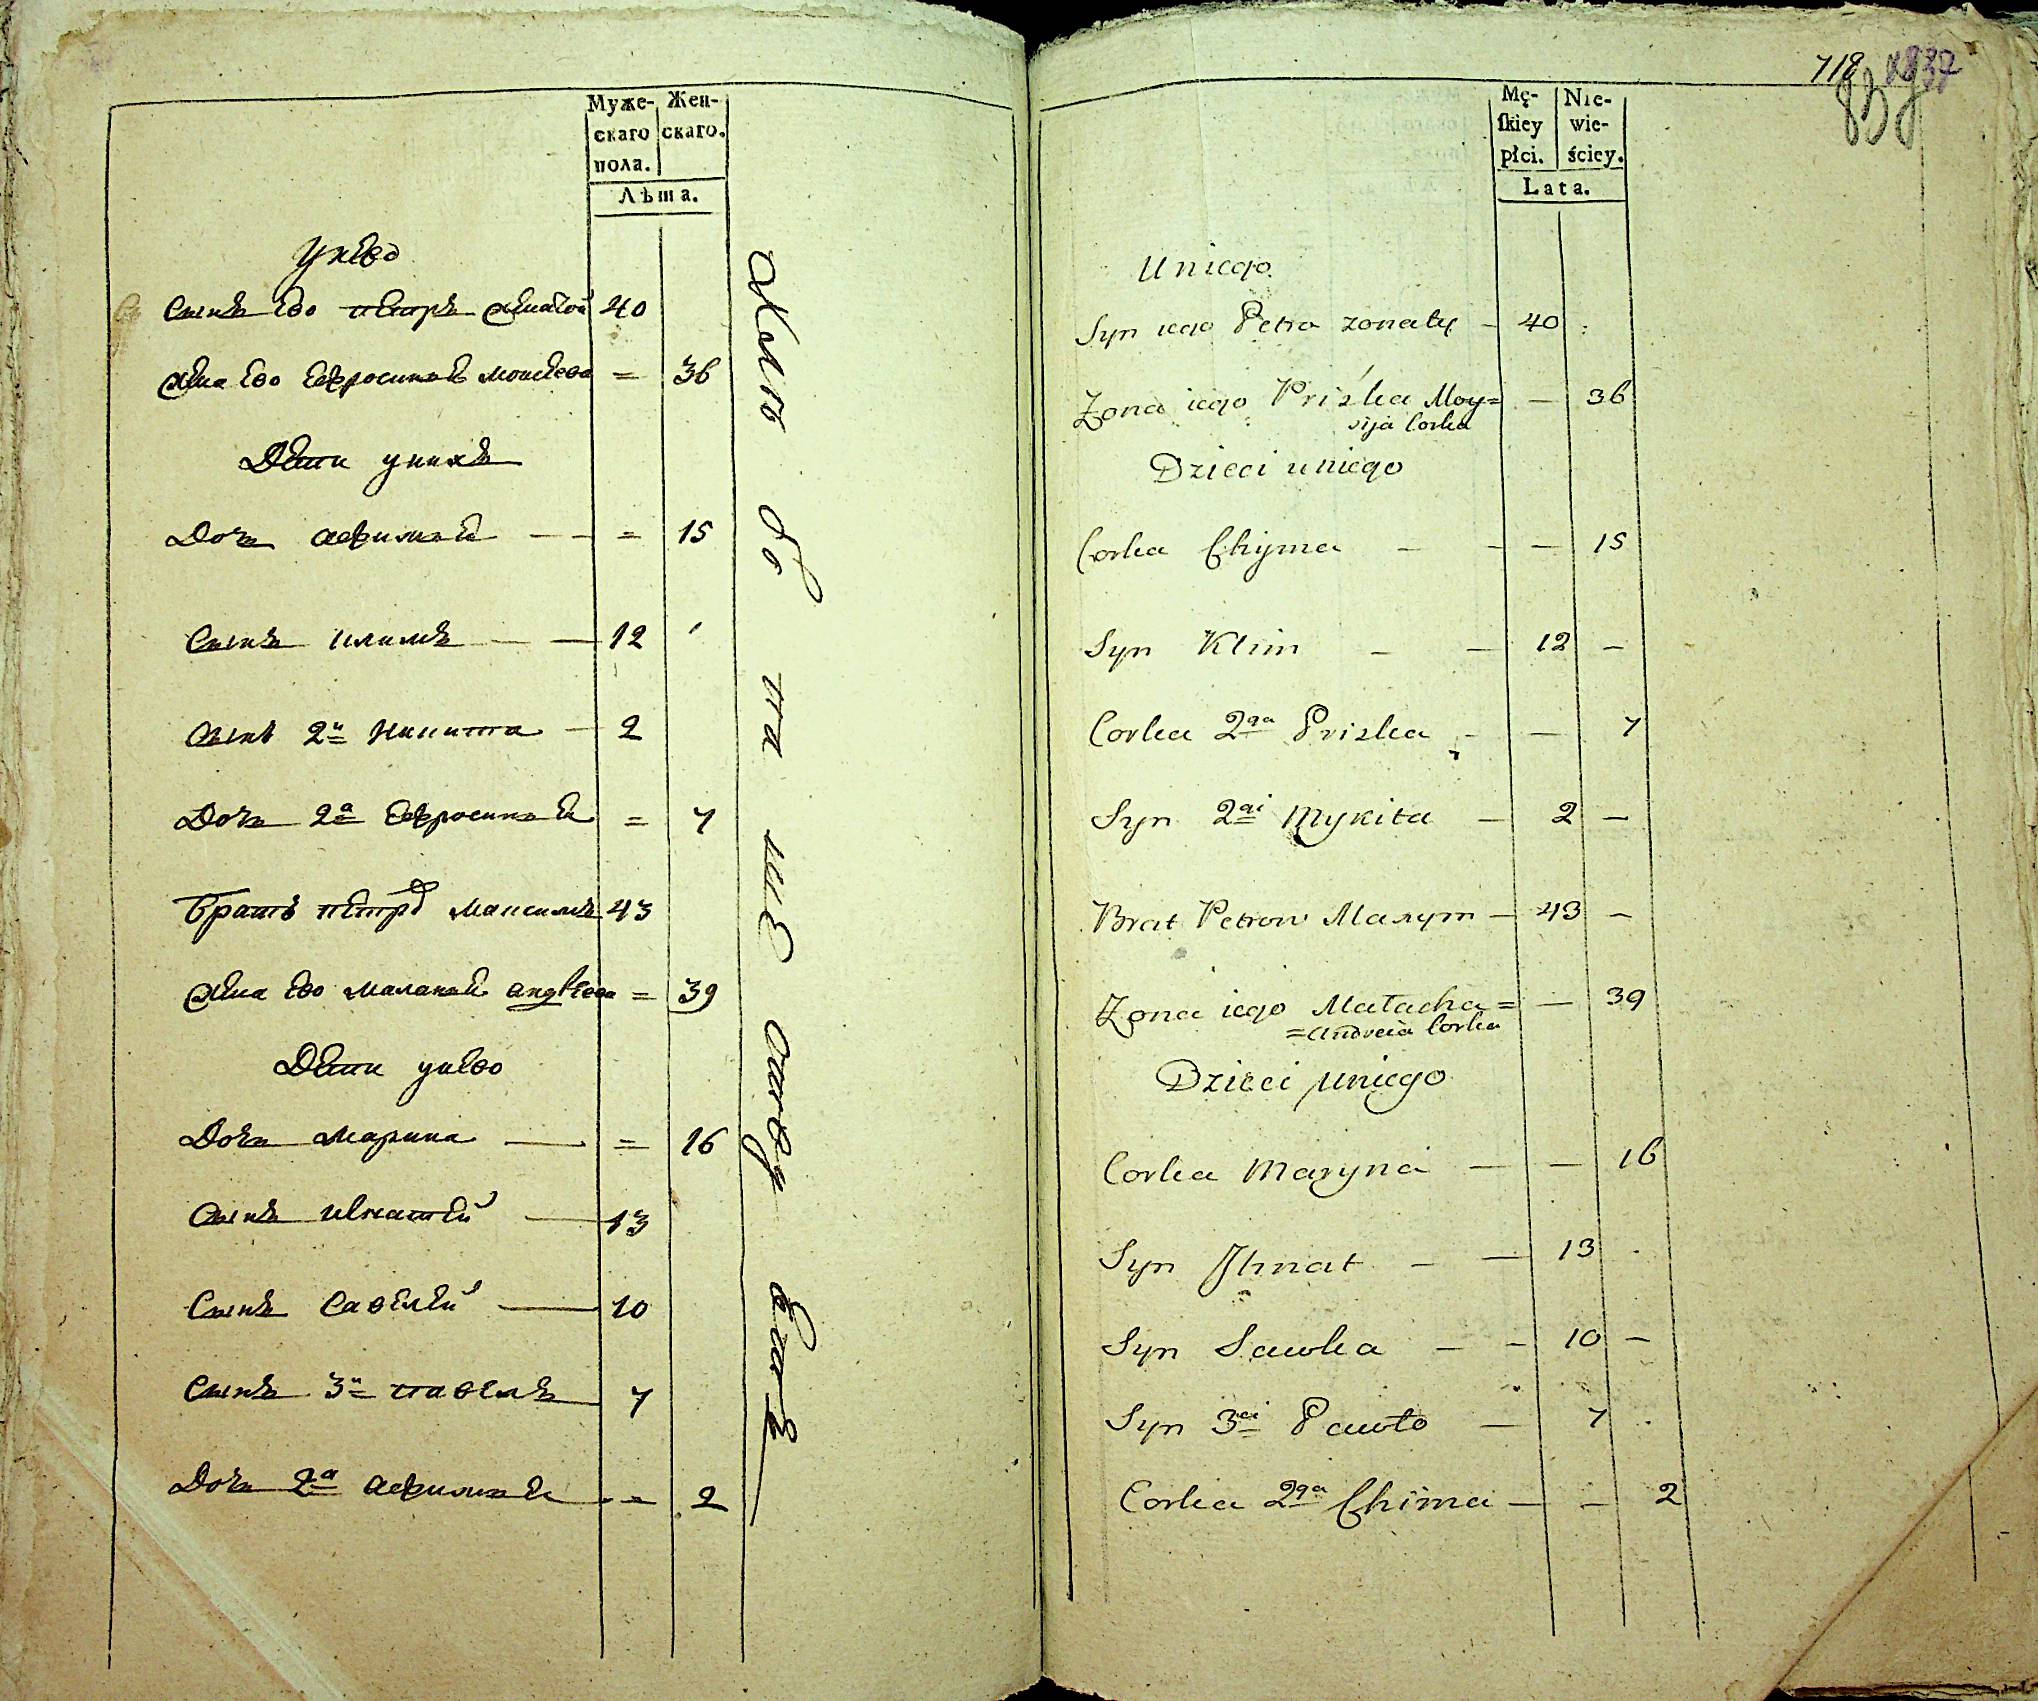 Муже-
скаго
пола.
Жен-
скаго.
Лѣта.
унево
Сынъ ево петръ женатой 40
жена ево ефросиния моисеева = 36
Дети унихъ
Дочь афимия = 15
Сынъ климъ 12
сынъ 2й Никита 2
Дочь 2а ефросиния = 7
братъ петров Максимъ 43
жена ево малания андреева = 39
Дети унево
Дочь марина = 16
Сынъ игнатей 13
Сынъ Савелей 10
Сынъ 3й павелъ 7
Дочь 2а афимия = 2
718
Mę-
skiey
płci.
Nie-
wie-
ściey.
Lata.
Uniego
Syn iego Petro zonaty – 40
Zona iego Priśka Moy= – 36
sija Corka
Dzieci uniego
Corka Chyma – – – 15
Syn Klim – – 12 –
Corka 2ga Priska – – 7
Syn 2ai Mykita – 2 –
Brat Petrow Maxym – 43 –
Zona iego Małacha= – 39
=andreia Corka
Dzieci uniego
Corka Maryna – – 16
Syn Jhnat – – 13
Syn Sawka – – 10 –
Syn 3ai Pawło – 7
Corka 2ga Chima – – 2